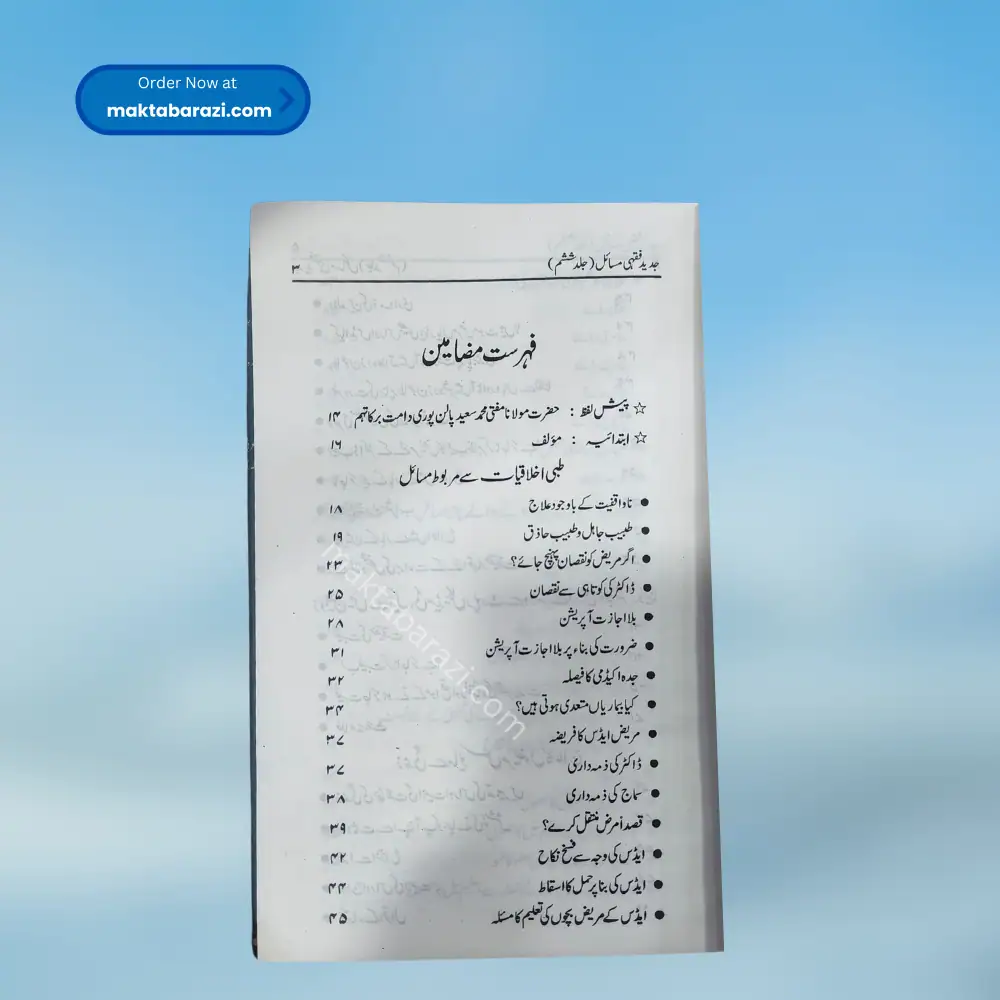 Order Now at
maktabarazi.com
جدید فقہی مسائل (جلد ششم) ۳
فہرست مضامین
☆ پیش لفظ : حضرت مولانا مفتی محمد سعید پالن پوری دامت برکاتہم ۱۴
☆ ابتدائیہ : مؤلف ۱۶
طبی اخلاقیات سے مربوط مسائل
● ناواقفیت کے باوجود علاج ۱۸
● طبیب جاہل و طبیب حاذق ۱۹
● اگر مریض کو نقصان پہنچ جائے؟ ۲۳
● ڈاکٹر کی کوتاہی سے نقصان ۲۵
● بلا اجازت آپریشن ۲۸
● ضرورت کی بناء پر بلا اجازت آپریشن ۳۱
● جدہ اکیڈمی کا فیصلہ ۳۲
● کیا بیماریاں متعدی ہوتی ہیں؟ ۳۴
● مریض ایڈس کا فریضہ ۳۷
● ڈاکٹر کی ذمہ داری ۳۷
● سماج کی ذمہ داری ۳۸
● قصداً مرض منتقل کرے؟ ۳۹
● ایڈس کی وجہ سے فسخ نکاح ۴۲
● ایڈس کی بنا پر حمل کا اسقاط ۴۴
● ایڈس کے مریض بچوں کی تعلیم کا مسئلہ ۴۵
maktabarazi.com